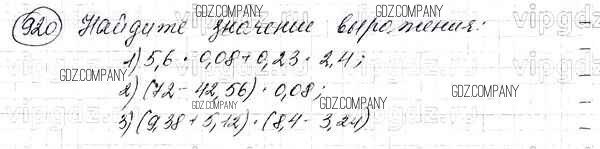 920 Найдите значение выражения:
1) 5,6 · 0,08 + 0,23 · 2,4;
2) (72 - 42,56) · 0,08;
3) (9,38 + 5,12) · (8,4 - 3,24)
GDZ.COMPANY
GDZ.COMPANY
GDZ.COMPANY
GDZ.COMPANY
GDZ.COMPANY
GDZ.COMPANY
vipgdz
vipgdz
vipgdz